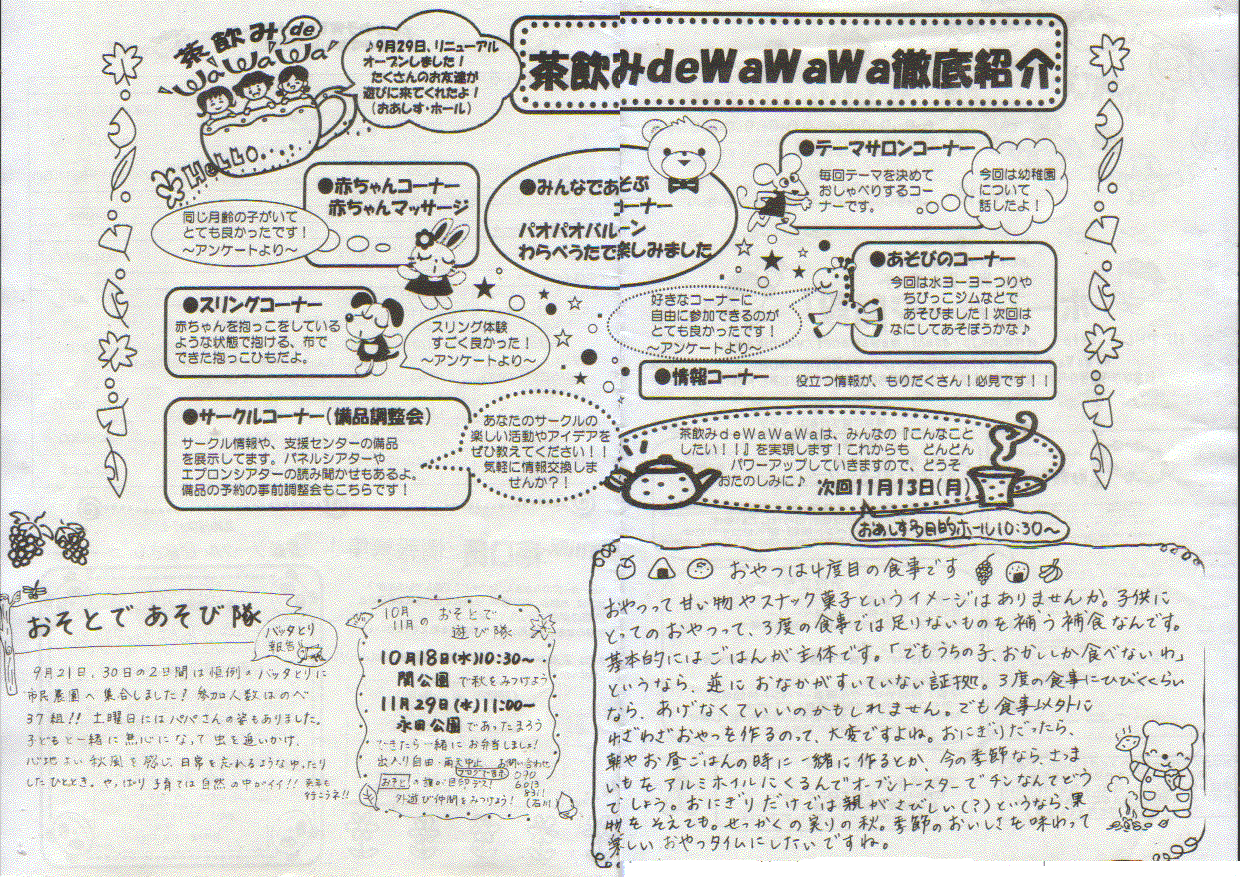 茶飲み de
WaWaWa
HELLO...
♪9月29日、リニューアル
オープンしました！
たくさんのお友達が
遊びに来てくれたよ！
（おあしす・ホール）
茶飲みdeWaWaWa徹底紹介
●赤ちゃんコーナー
赤ちゃんマッサージ
同じ月齢の子がいて
とても良かったです！
～アンケートより～
●みんなであそぶ
コーナー
パオパオバルーン
わらべうたで楽しみました
●テーマサロンコーナー
毎回テーマを決めて
おしゃべりするコー
ナーです。
今回は幼稚園
について
話したよ！
●スリングコーナー
赤ちゃんを抱っこをしている
ような状態で抱ける、布で
できた抱っこひもだよ。
スリング体験
すごく良かった！
～アンケートより～
好きなコーナーに
自由に参加できるのが
とても良かったです！
～アンケートより～
●あそびのコーナー
今回は水ヨーヨーつりや
ちびっこジムなどで
あそびました！次回は
なにしてあそぼうかな♪
●情報コーナー 役立つ情報が、もりだくさん！必見です！！
●サークルコーナー（備品調整会）
サークル情報や、支援センターの備品
を展示してます。パネルシアターや
エプロンシアターの読み聞かせもあるよ。
備品の予約の事前調整会もこちらです！
あなたのサークルの
楽しい活動やアイデアを
ぜひ教えてください！！
気軽に情報交換しま
せんか？！
茶飲みdeWaWaWaは、みんなの『こんなこと
したい！！』を実現します！これからも どんどん
パワーアップしていきますので、どうぞ
おたのしみに♪ 次回11月13日（月）
おあしす多目的ホール10:30～
おそとであそび隊
バッタとり
報告
9月21日、30日の2日間は恒例のバッタとりに
市民農園へ集合しました！参加人数はのべ
37組！！土曜日にはパパさんの姿もありました。
子どもと一緒に無心になって虫を追いかけ、
心地よい秋風を感じ、日常を忘れるようなゆったり
したひととき。やっぱり子育ては自然の中がイイ！！
10月
11月の おそとで
遊び隊
10月18日（水）10:30～
関公園で秋をみつけよう
11月29日（水）11:00～
永田公園であったまろう
できたら一緒にお弁当しましょ！
出入り自由・雨天中止 お問い合わせ
おそとの旗が目印デス！
外遊び仲間をみつけよう！（石川
おやつは4度目の食事です
おやつって甘い物やスナック菓子というイメージはありませんか。子供に
とってのおやつって、3度の食事では足りないものを補う補食なんです。
基本的にはごはんが主体です。「でもうちの子、おかししか食べないわ」
というなら、逆におなかがすいていない証拠。3度の食事にひびくくらい
なら、あげなくていいのかもしれません。でも食事以外に
わざわざおやつを作るのって、大変ですよね。おにぎりだったら、
朝やお昼ごはんの時に一緒に作るとか、今の季節なら、さつま
いもをアルミホイルにくるんでオーブントースターでチンなんてどう
でしょう。おにぎりだけでは親がさびしい（？）というなら、果
物をそえても。せっかくの実りの秋。季節のおいしさを味わって
楽しいおやつタイムにしたいですね。